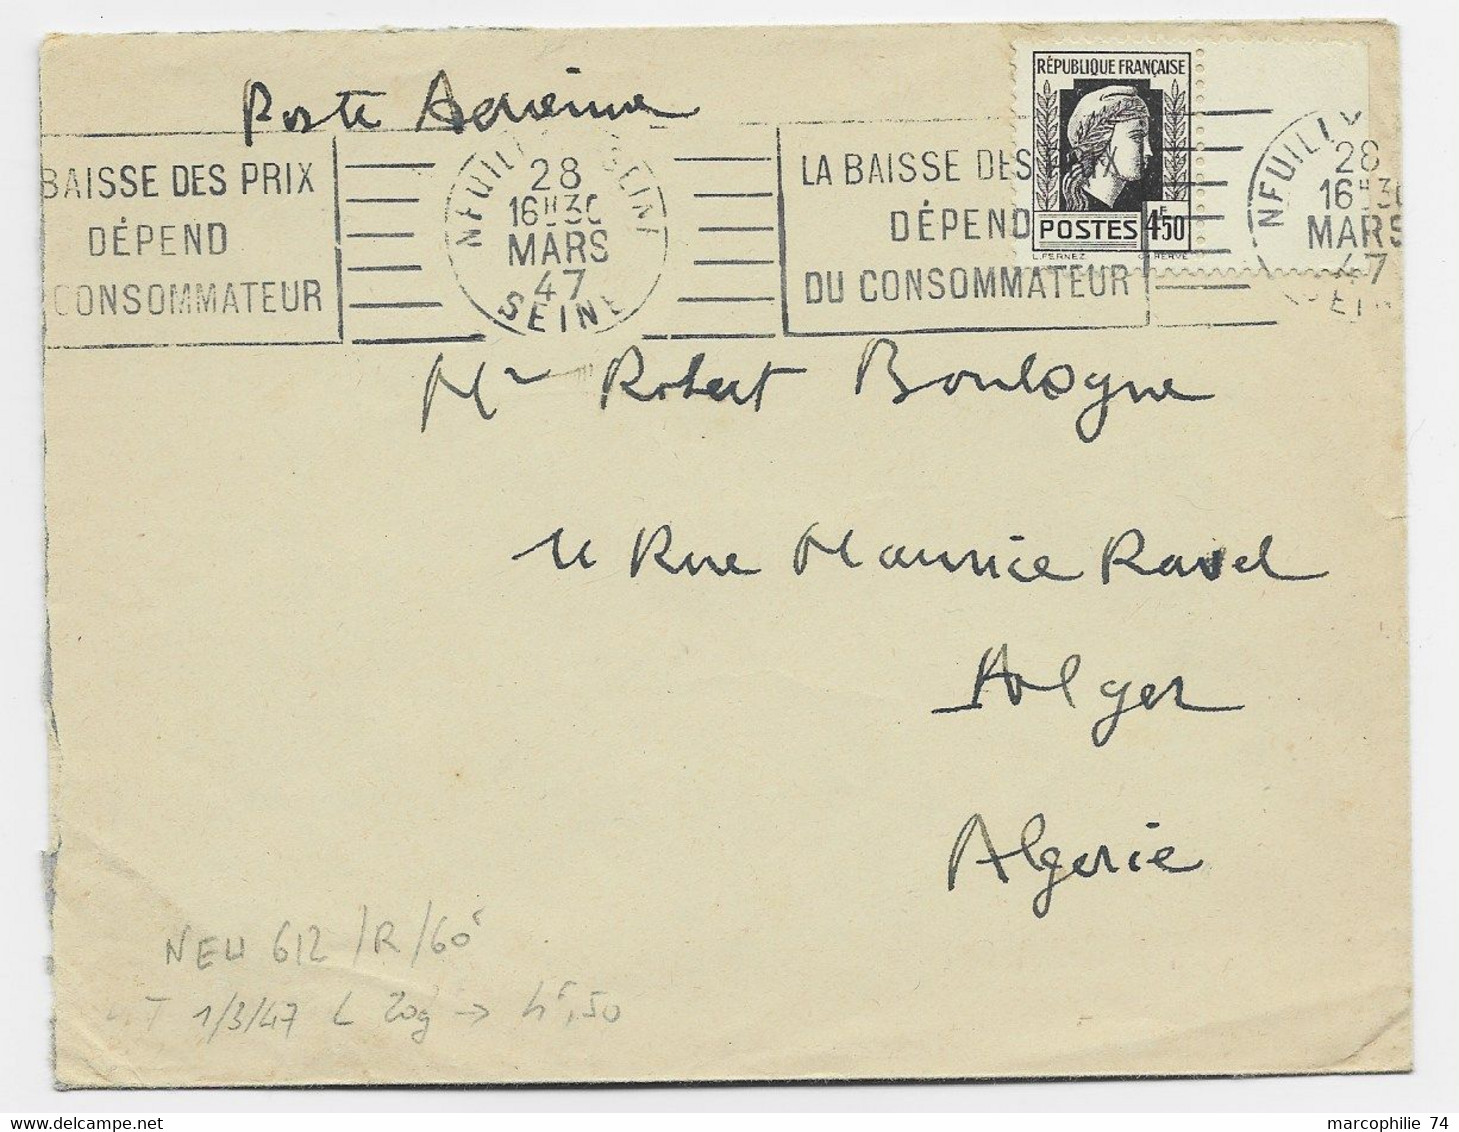 Poste Aérienne
RÉPUBLIQUE FRANÇAISE
POSTES 4F50
BAISSE DES PRIX
DÉPEND
CONSOMMATEUR
NEUILLY SEINE
28
16H30
MARS
47
SEINE
LA BAISSE DES PRIX
DÉPEND
DU CONSOMMATEUR
NEUILLY
28
16H30
MARS
47
SEIN
Mr Robert Boulogne
11 Rue Maurice Ravel
Alger
Algerie
NEU 612 /R/60F
T 1/3/47 L 20g → 4F,50
marcophilie 74